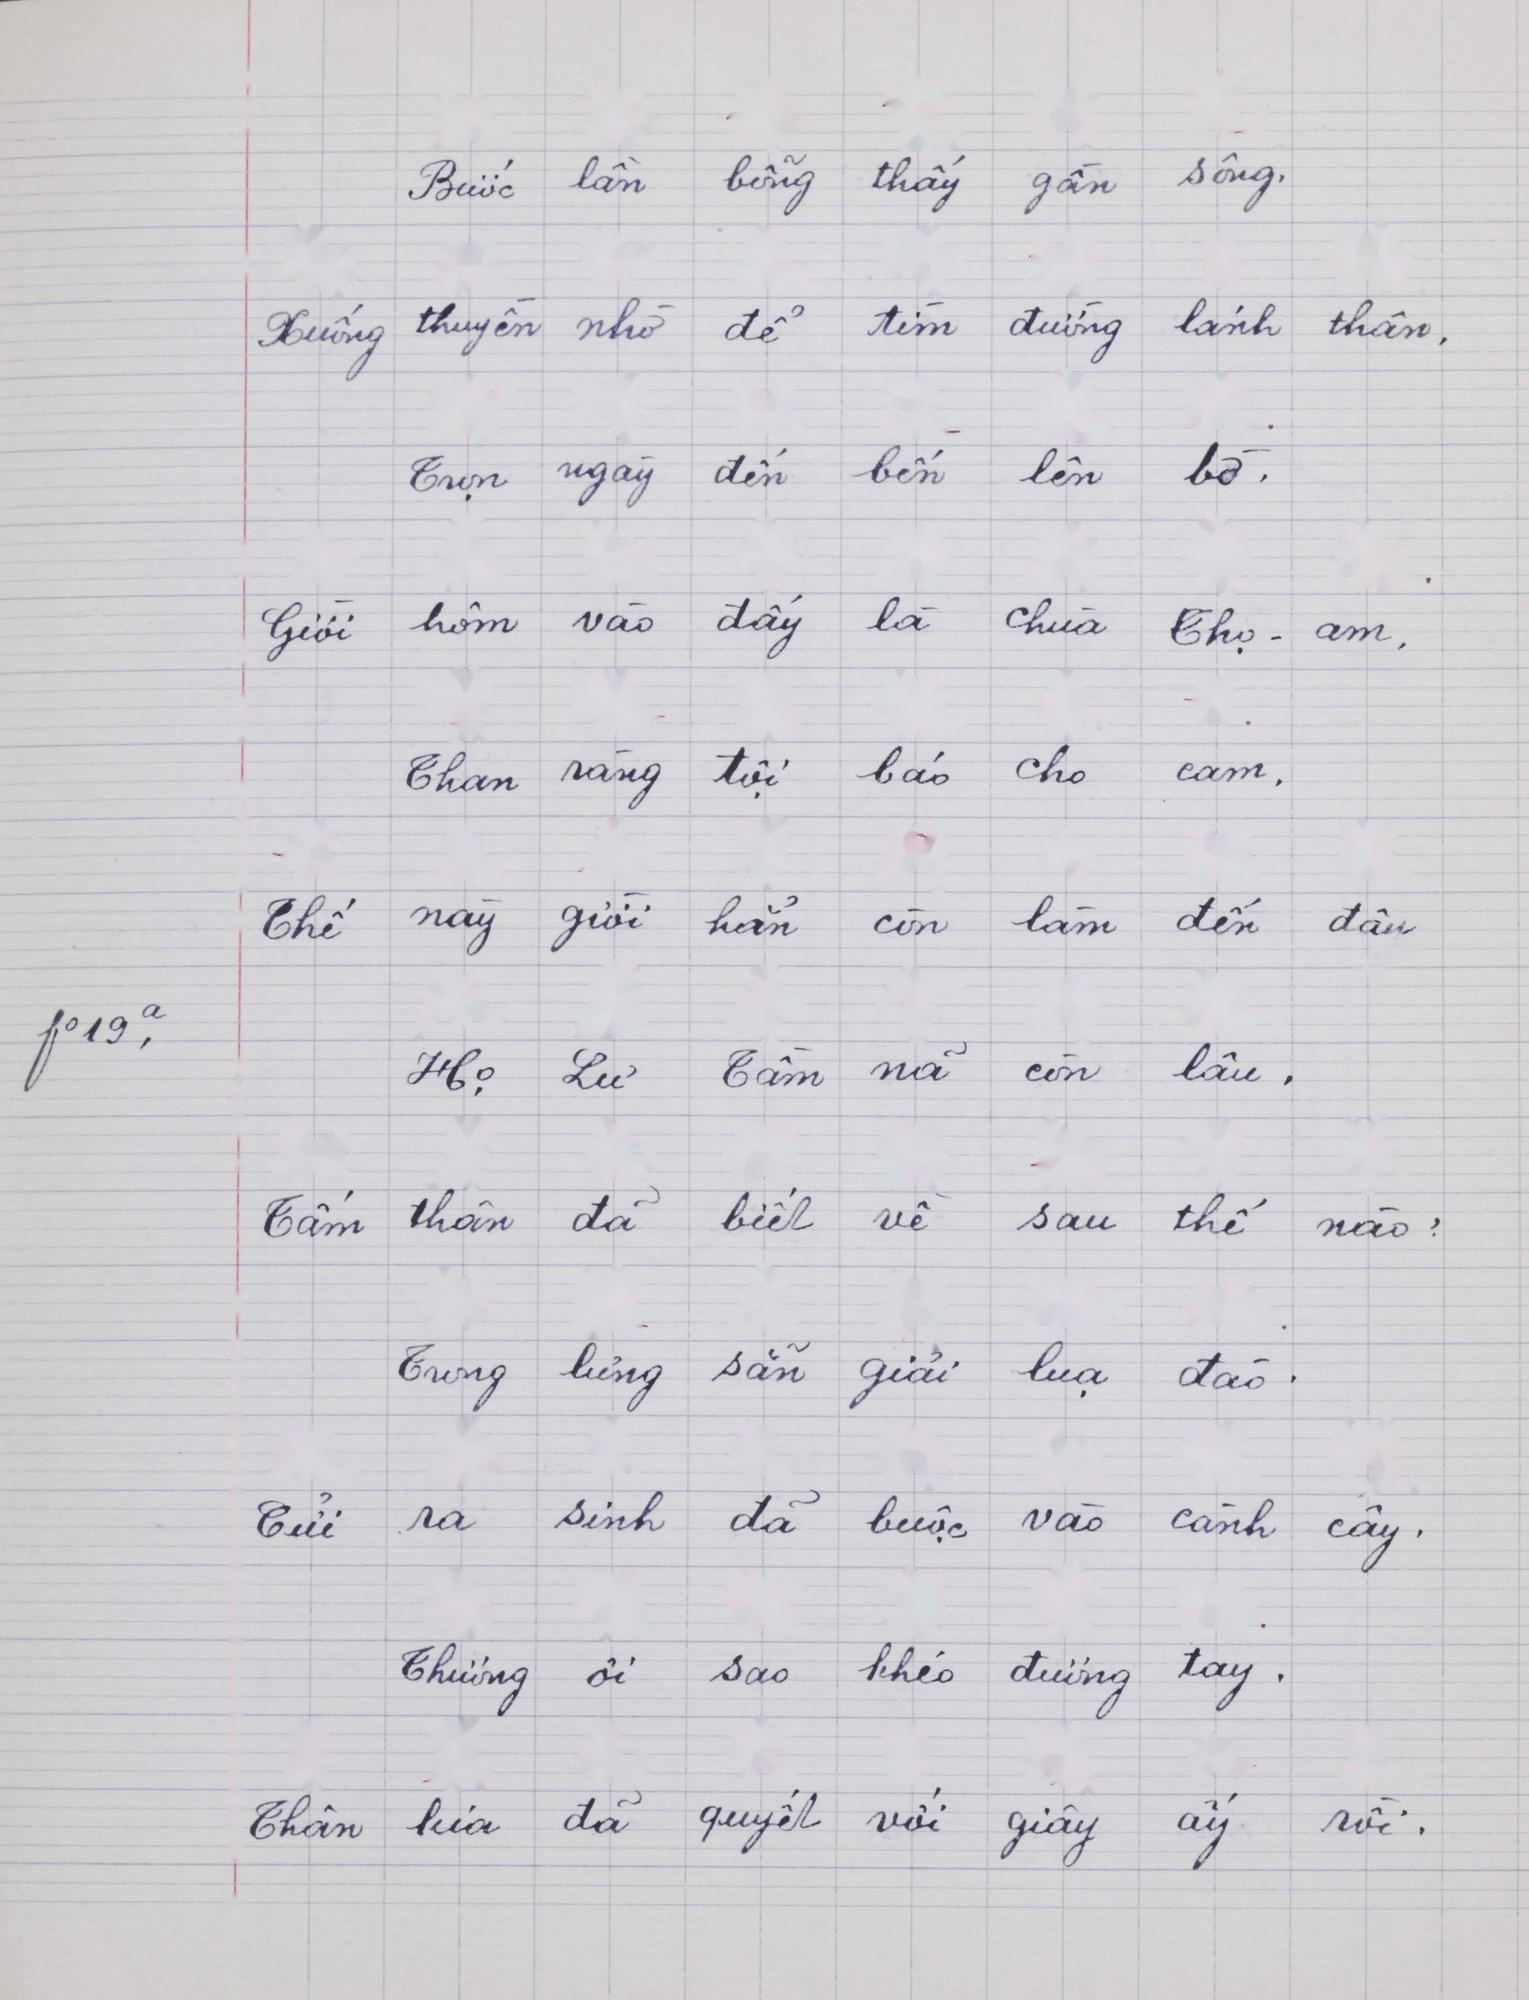 Bước lần bỗng thấy gần sông.
Xuống thuyền nhờ để tìm đường lánh thân.
Trọn ngày đến bến lên bờ.
Giời hôm vào đấy là chùa Thọ-am,
Than rằng tội báo cho cam.
Thế này giời hẳn còn làm đến đâu
fº 19ª,
Họ Lư Tầm nã còn lâu.
Tấm thân đã biết về sau thế nào?
Trong lưng sẵn giải lụa đào.
Cửi ra sinh đã buộc vào cành cây.
Thương ôi sao khéo đương tay.
Thân kia đã quyết với giây ấy rồi.